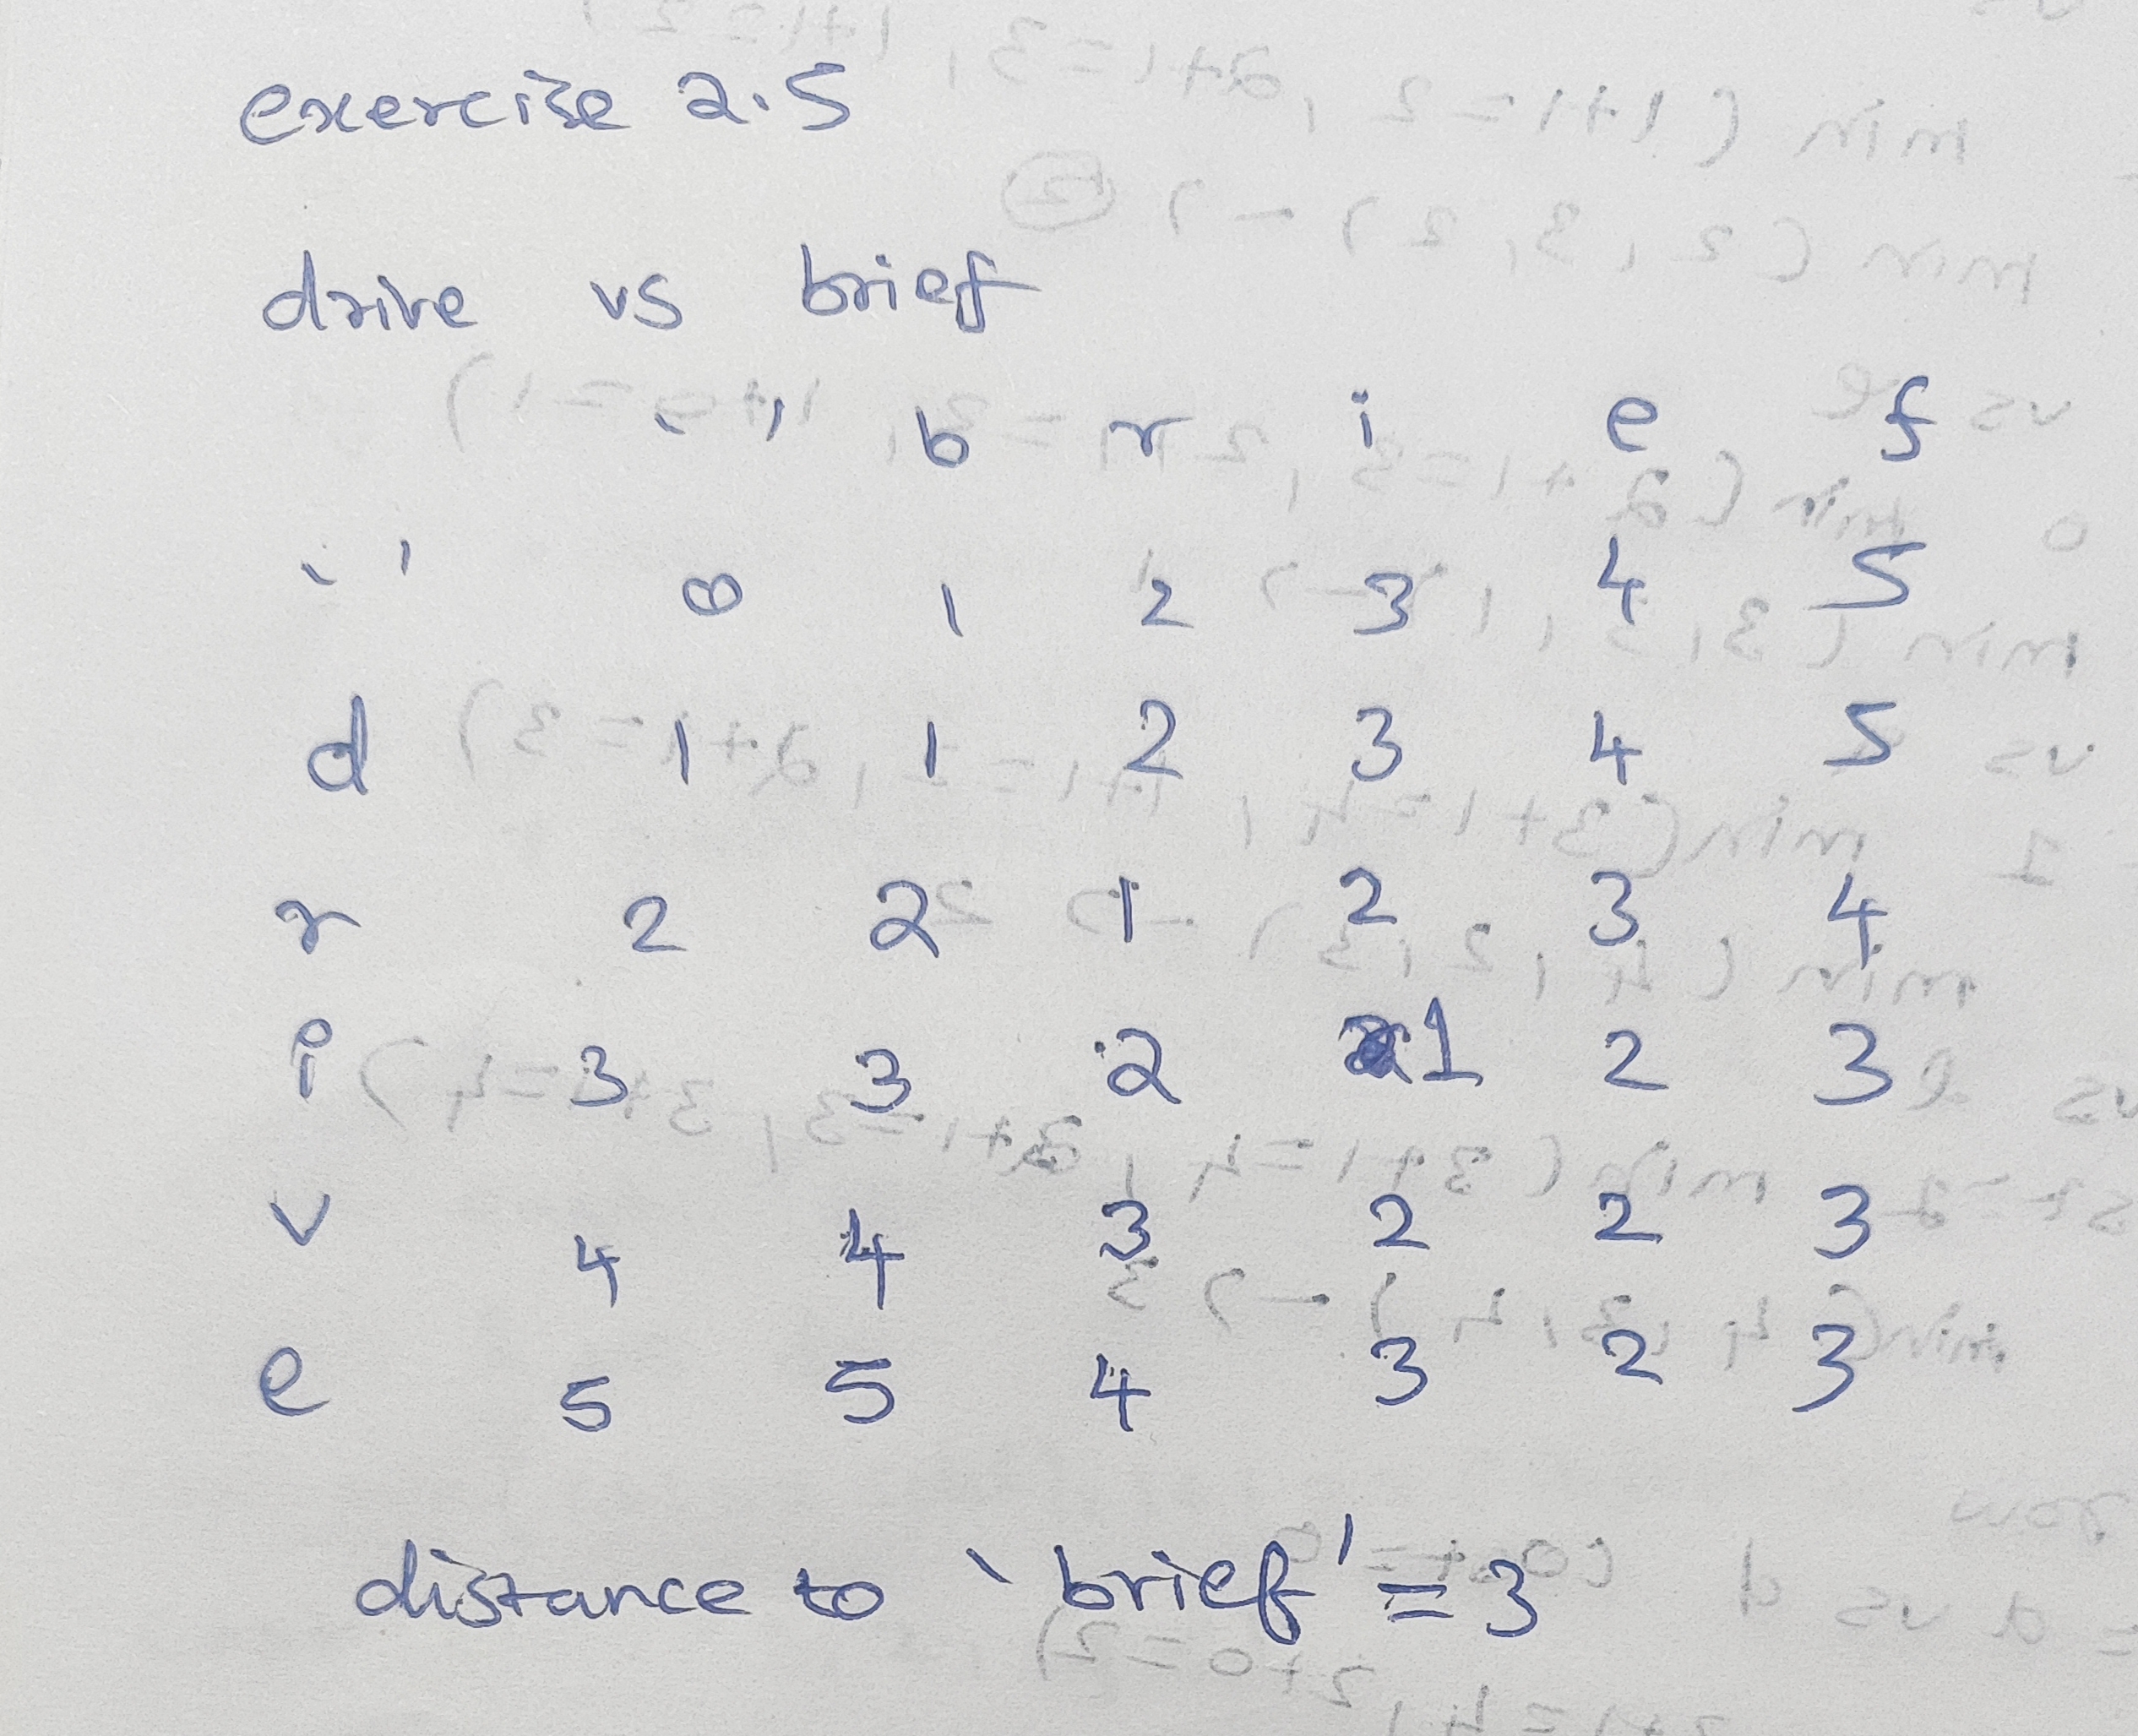 exercise 2.5
drive vs brief
` ' b r i e f
` ' 0 1 2 3 4 5
d 1 1 2 3 4 5
r 2 2 1 2 3 4
i 3 3 2 1 2 3
v 4 4 3 2 2 3
e 5 5 4 3 2 3
distance to ` brief ' = 3